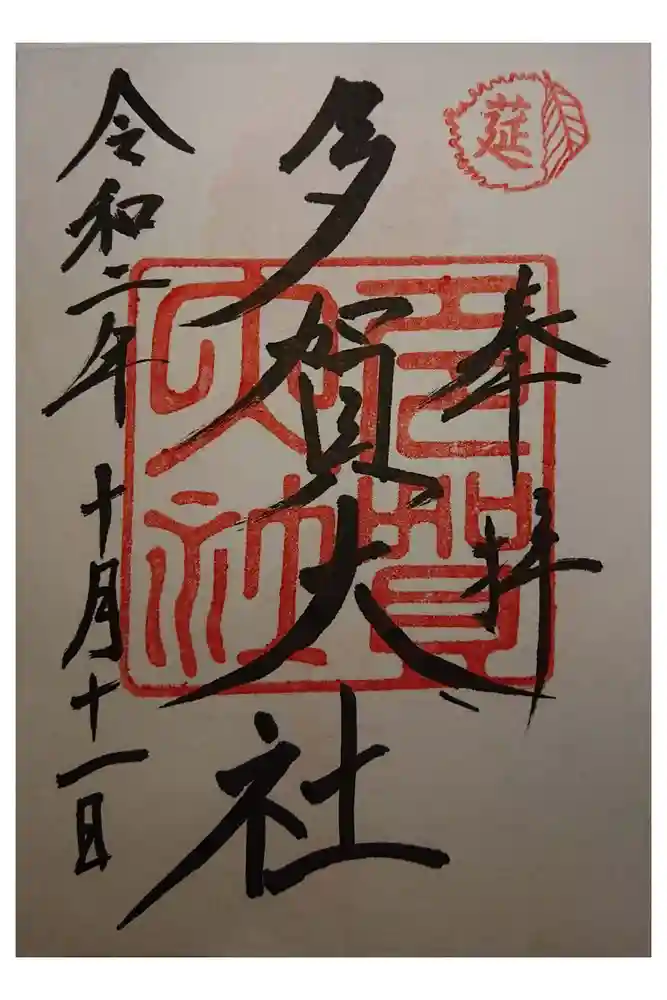 莚
奉拝
多賀大社
多賀大社
令和二年十月十一日